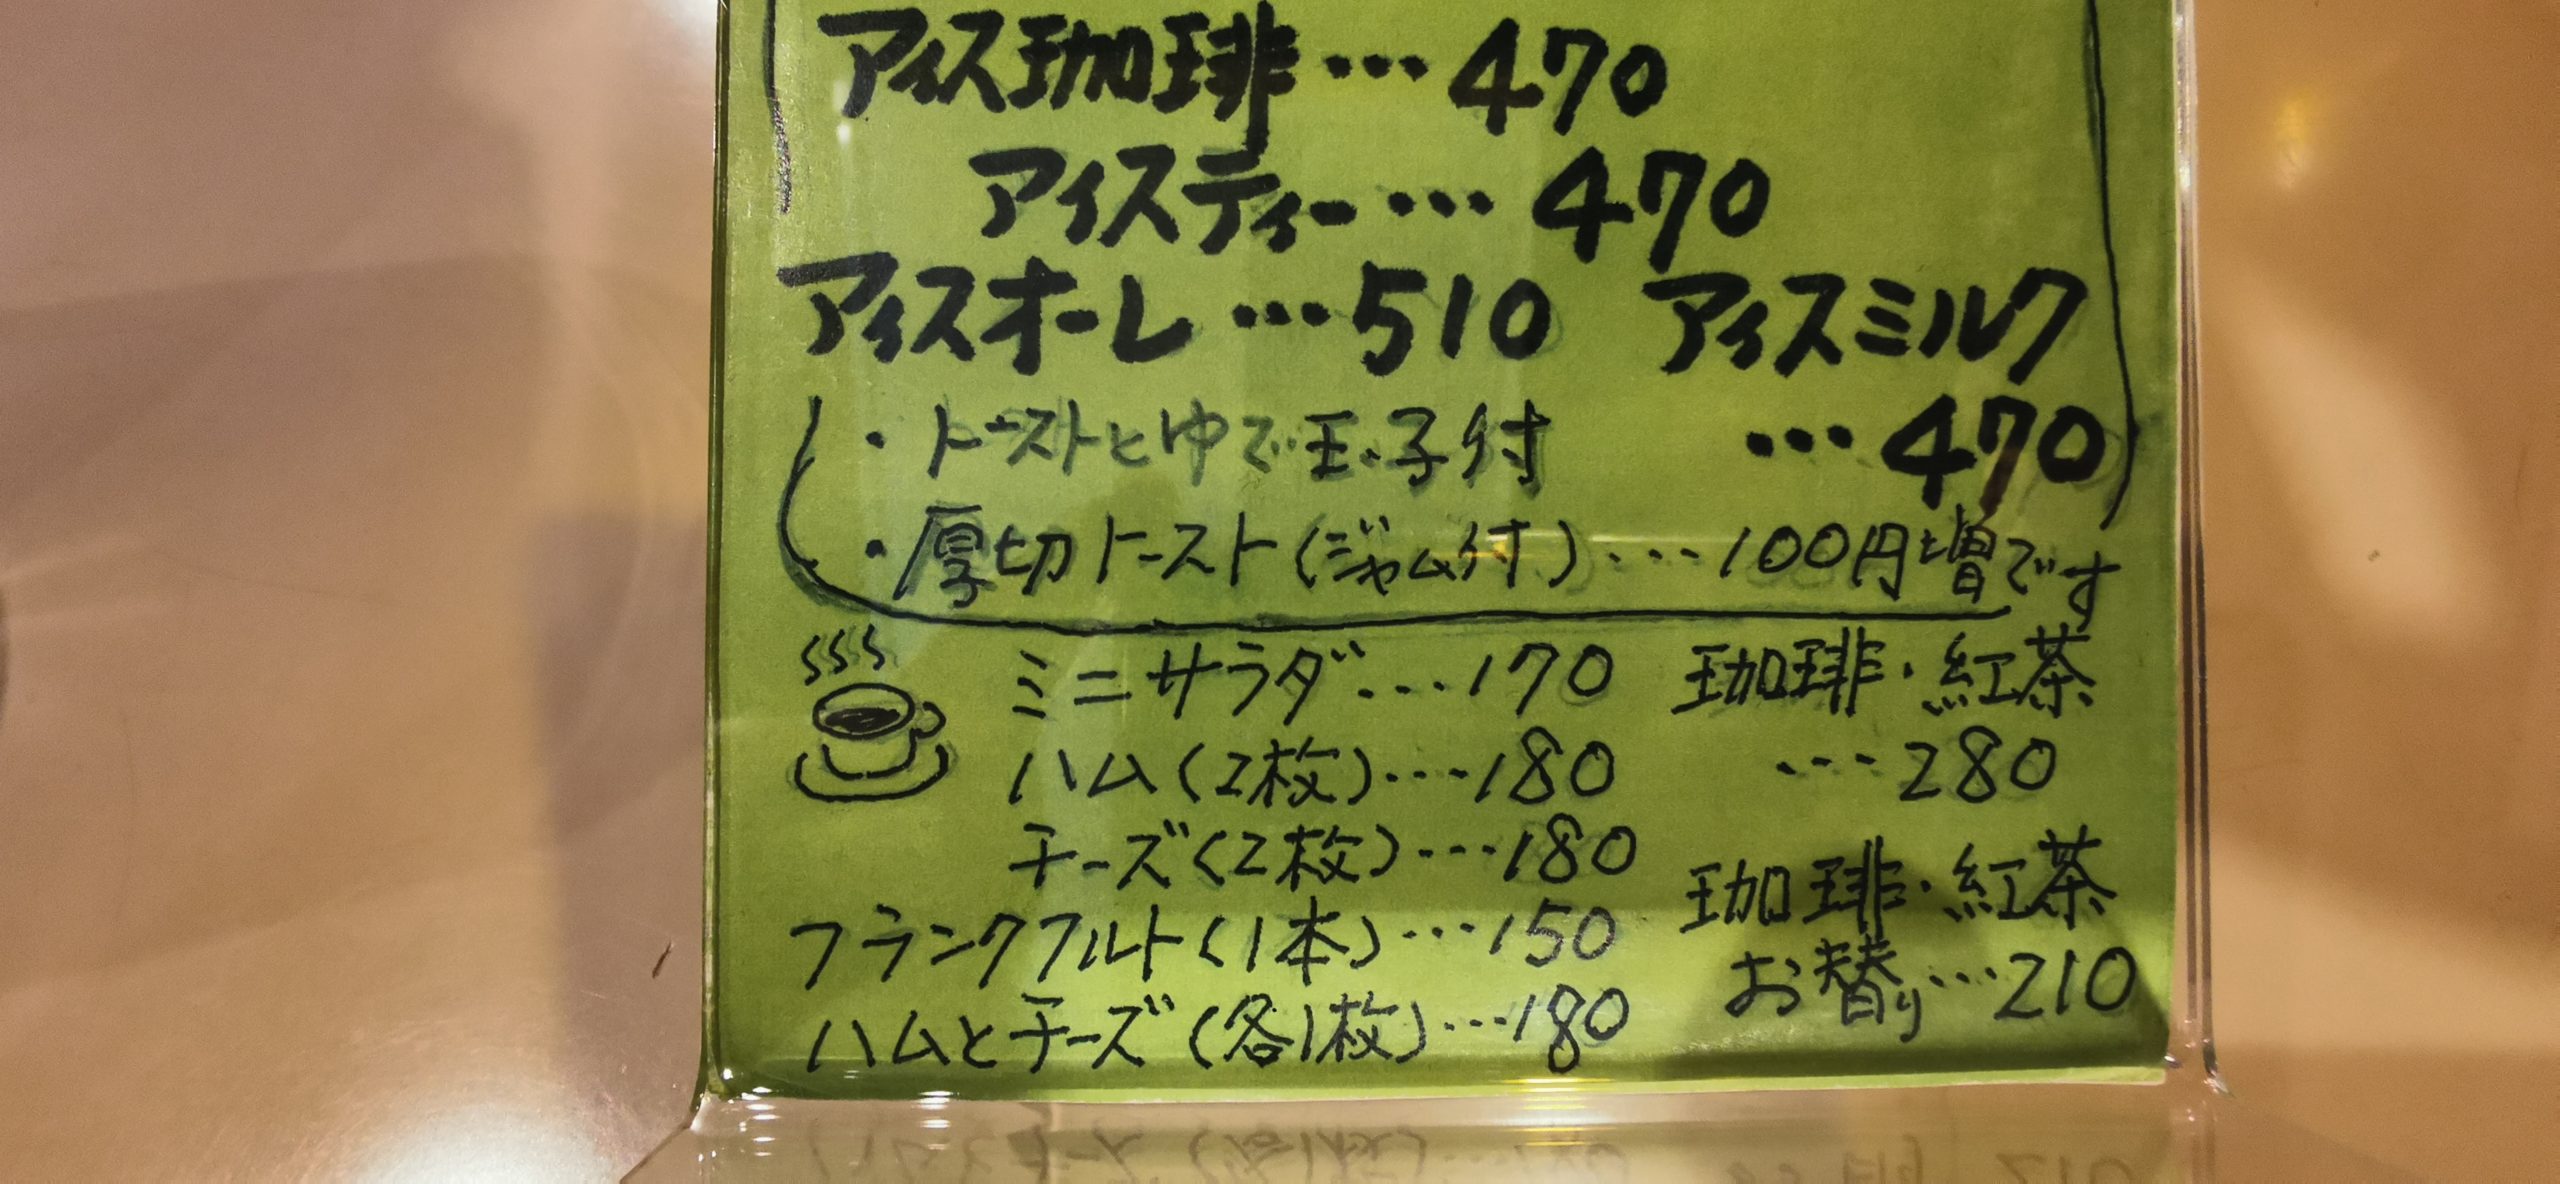 アイス珈琲…470
アイスティー…470
アイスオーレ…510
アイスミルク
…470
・トーストとゆで玉子付
・厚切トースト(ジャム付)…100円増です
ミニサラダ…170
ハム(2枚)…180
チーズ(2枚)…180
フランクフルト(1本)…150
ハムとチーズ(各1枚)…180
珈琲・紅茶
…280
珈琲・紅茶
お替り…210